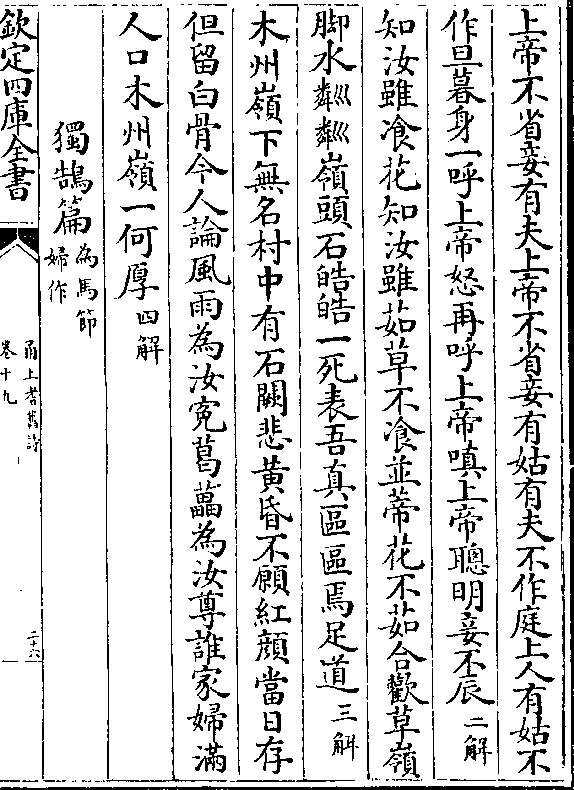 上帝不省妾有夫上帝不省妾有姑有夫不作庭上人有姑不
作旦暮身一呼上帝怒再呼上帝嗔上帝聰明妾不辰二解
知汝雖飡花知汝雖茹草不飡並蒂花不茹合歡草嶺
脚水粼粼嶺頭石皓皓一死表吾真區區焉足道三解
木州嶺下無名村中有石闕悲黄昏不願紅顔當日存
但留白骨令人論風雨為汝寃葛藟為汝尊誰家婦滿
人口木州嶺一何厚四解
獨鵠篇為馬節婦作
欽定四庫全書
甬上耆舊詩
卷十九
二十六